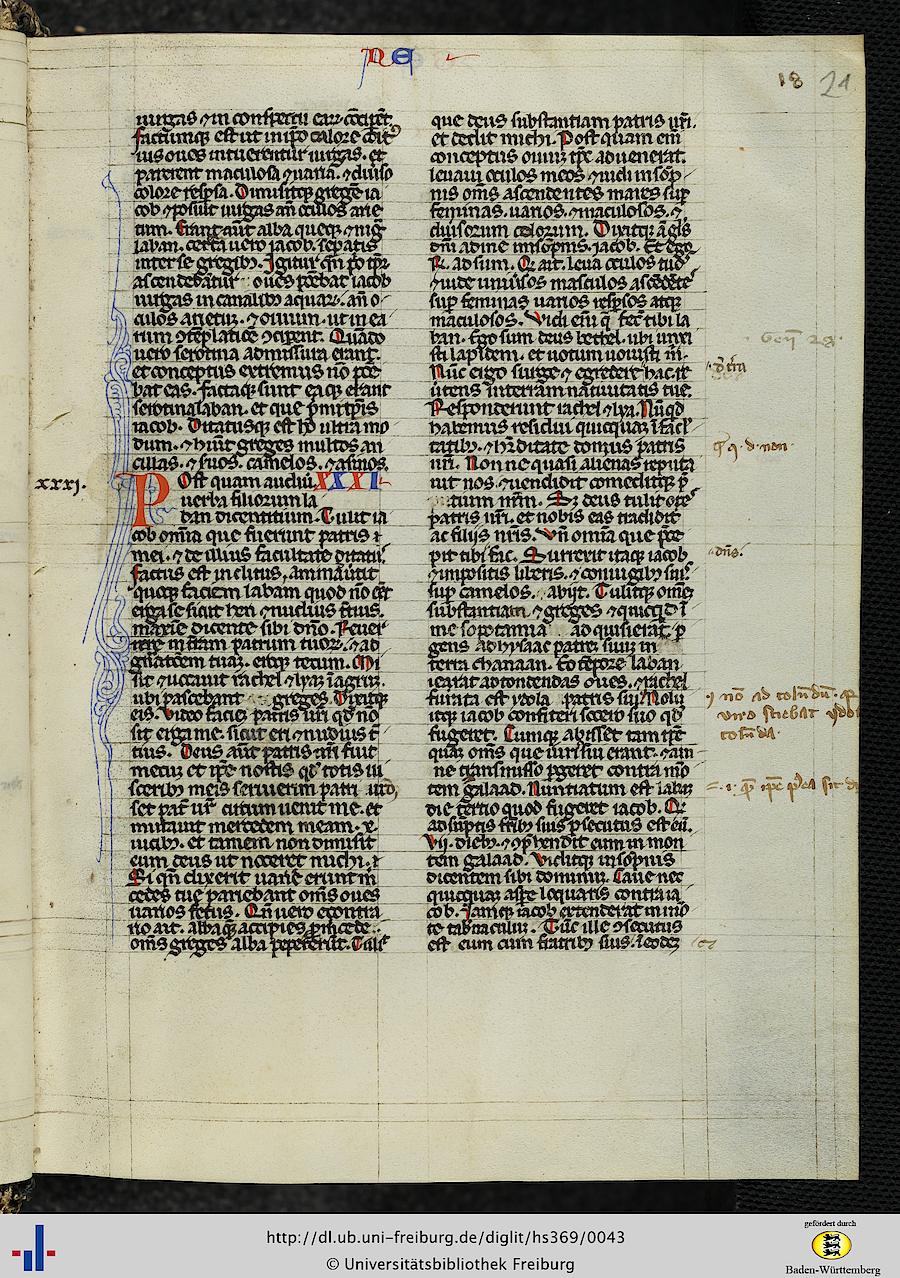 NE
18 21
uirgas ⁊ in conspectu earͫ cōciꝑēt.
factumqꝫ est ut in ip̄o calore coit⁹
uis oues intuerentur uirgas. et
parerent maculosa ⁊ uaria. ⁊ diuiso
colore resp̄sa. Diuisitqꝫ gregē ia
cob ⁊ posuit uirgas añ oculos arie
tum. Erant aūt alba queqꝫ ⁊ nig̃
laban. cetera uero iacob. sepatis
inter se gregibꝫ. Igitur
ascendebātur oues ponebat iacob
uirgas in canalibꝫ aquarꝫ. añ o
culos arietū. ⁊ ouium. ut in ea
rum ꝯtēplatiōe ꝯciꝑent. Quādo
uero serotina admissura erant.
et conceptus extremus nō pone
bat eas. factaqꝫ sunt ea que erant
serotina laban. et que p̄mi tꝑis
iacob. Ditatusqꝫ est hō ultra mo
dum. ⁊ habuit greges multos an
cillas. ⁊ suos. camelos. ⁊ asinos.
XXXI
xxxj.
Post quam audiū
uerba filiorum la
ban dicentium. Tulit ia
cob omīa que fuerunt patris
mei. ⁊ de illius facultate ditatꝰ
factus est inclitus, animaūtit
queqꝫ faciem labam quod nō eēt
erga se sicut heri ⁊ nudius tius.
maxīe dicente sibi dño. Reuer
tere in terram patrum tuorꝫ. ⁊ ad
gn̄atōem tuaꝫ. eroqꝫ tecum. Mi
sit ⁊ uocauit rachel ⁊ lyaꝫ ī agrū.
ubi pascebant greges. Dixitqꝫ
eis. Video faciē patris ur̄i qd̄ nō
sit erga me. sicut eri ⁊ nudius t
tius. Deus aūt patris mī fuit
mecū et ip̄e nostis qd̄ totis ui
ribꝫ meis seruierim patri uro,
set pat̄ ur̄ circumuenit me. et
mutauit mercedem meam. x.
uicibꝫ. et tamen non dimisit
eum deus ut noceret michi.
Si qn̄ dixerit uarie erunt m̄
cedes tue pariebant om̄s oues
uarios fetus. Qn̄ uero econtra
rio ait. albaqꝫ accipies ꝓ mercede.
om̄s greges alba pepererūt. Tulit
que deus substantiam patris ur̄i.
et dedit michi. Post quam eni
conceptus ouiuꝫ tꝑe aduenerat.
leuaui oculos meos ⁊ uidi in sop̄
nis om̄s ascendentes mares suꝑ
feminas. uarios. ⁊ maculosos. ⁊
diuisorum colorum. Dixitqꝫ āgl̄s
dn̄i ad me in sop̄nis. iacob. Et ego
R̄. ad sum. Q̄ ait. leua oculos tuos
⁊ uide uniūsos masculos ascēdētes
suꝑ feminas uarios resp̄sos atqꝫ
maculosos. Vidi eni q̄ fec̄ tibi la
ban. Ego sum deus bethel. ubi unxi
sti lapidem. et uotum uouisti m̄.
Nūc ergo surge ⁊ egredere hac t̄re
ūtens in terram natiuitatis tue.
Responderunt rachel ⁊ lya. Nūqd̄
habemus residui quicquaꝫ ī facl̄
tatibꝫ. ⁊ h̄editate domus patris
nr̄i. Non ne quasi alienas reputa
uit nos. ⁊ uendidit comeditqꝫ p̄
tium nrm̄. S; deus tulit opes
patris nr̄i. et nobis eas tradidit
ac filiis nr̄is. Vn̄ omīa que p̄ce
pit tibi fac. Surrexit itaqꝫ iacob
⁊ impositis liberis. ⁊ coniugibꝫ suis
suꝑ camelos. abijt. Tulitqꝫ om̄eꝫ
substantiam. ⁊ greges ⁊ quicqd̄ ī
mesopotamia ad quisierat ꝑ
gens ad hysaac patrē suum in
terra chanaan. Eo tēpore laban
ierat ad tondendas oues. ⁊ rachel
furata est ydola patris sui. Nolu
itqꝫ iacob confiteri socero suo qd̄
fugeret. Cumqꝫ abisset tam ip̄e
quaꝫ om̄s que iuris sui erant. ⁊ am
ne transmisso ꝑgeret contra mō
tem galaad. Nuntiatum est laban
die tertio quod fugeret iacob. Q̄
adsūptis fr̄ibꝫ suis ꝑsecutus est eū.
Vij. diebꝫ. ⁊ ꝯꝑhendit eum in mon
tem galaad. Viditqꝫ in sop̄nis
dicentem sibi dominū. Caue ne
quicquaꝫ aspe loquaris contra ia
cob. Iamqꝫ iacob extenderat in mō
te tabnaculū. Tūc ille ꝯsecutus
est eum cum fratribꝫ suis. ī eodeꝫ
dn̄s.
http://dl.ub.uni-freiburg.de/diglit/hs369/0043
© Universitätsbibliothek Freiburg
gefördert durch
Baden-Württemberg